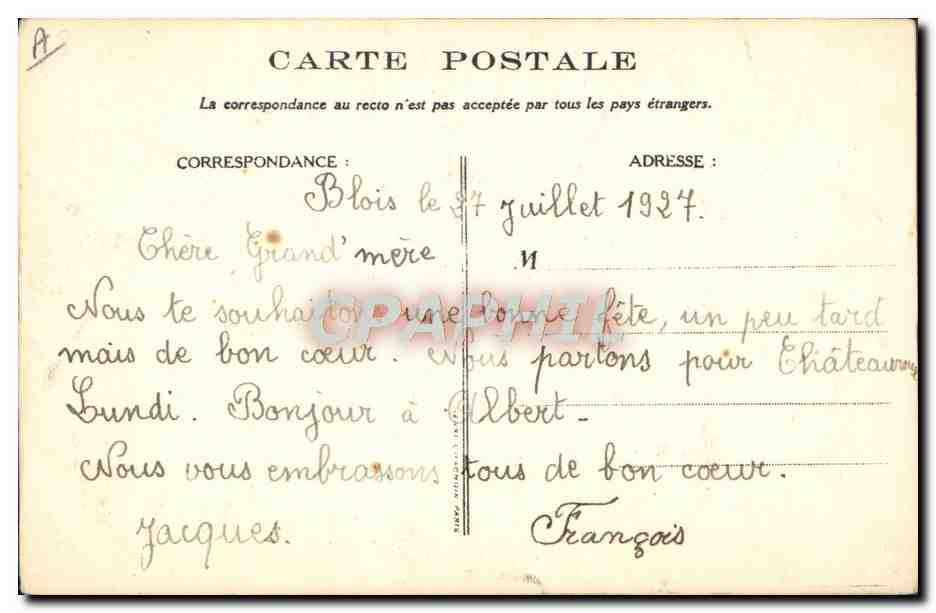 A
CARTE POSTALE
La correspondance au recto n'est pas acceptée par tous les pays étrangers.
CORRESPONDANCE :
ADRESSE :
Blois le 27 Juillet 1927.
Chère Grand'mère
M
Nous te souhaitons une bonne fête, un peu tard
mais de bon cœur. Nous partons pour Châteauroux
Lundi. Bonjour à Albert -
Nous vous embrassons tous de bon cœur.
Jacques. François
CPAPHIL